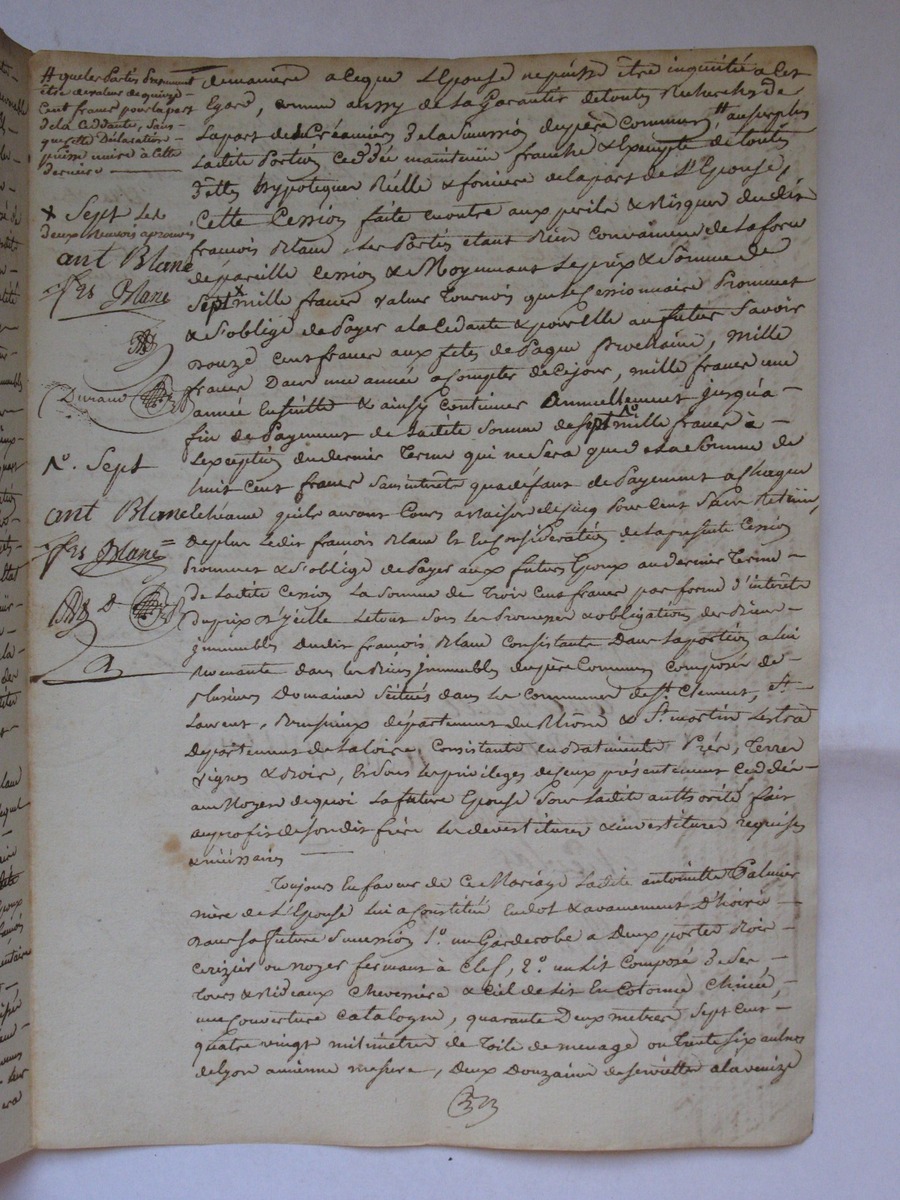 # que les Parties Presument
être de valeur de quinze
Cent francs pour la part
de la Ceddante, sans
que cette Déclaration
puisse nuire à cette
derniere
x Sept Les
deux Renvois aprouvés
ant Blanc
frs Blanc
Durand
No. Sept
ant Blanc
frs Blanc
D
demaniere a ceque L'Epouse ne puisse être inquiétée a cet
Egard, comme aussy de La Garantir de toutes Recherches de
La part des Créanciers de la Sucession du père Commun # au surplus
Ladite Portion Ceddée maintenüe franche & Exempte de toutes
Dettes hypoteques Réelle & fonciere de la part de L'Epouse,
Cette Cession faitte en outre aux perils & Risques dudit
francois Blanc, Les Parties etant bien Convaincues de La force
de pareille Cession & Moyennant Le prix & Somme de
Sept x mille francs valeur Tournois que le Cessionnaire Promet
& S'oblige de Payer a la Cedante & pour elle au futur Savoir
Douze cent francs aux fetes de Paque Prochaine, mille
francs Dans une année a Compter de Ce jour, mille francs une
année Ensuitte & ainsy Continuer Annuellement jusqu'a
fin de Payement de Ladite Somme de Sept No mille francs à
L'exception du dernier Terme qui ne Sera que de La Somme de
huit Cent francs Sans interets qu'a défaut de Payement a Chaque
Echéance qu'ils auront Cours a raison de Cinq Pour Cent Sans Retenue,
de plus Ledit francois Blanc Et En Considération de La presente Cession
Promet & S'oblige de Payer aux futurs Epoux au dernier Terme
de Ladite Cession La Somme de Trois Cent francs par forme d'interets
du prix d'ycelle Le tout Sous Les Promesses & obligations des Biens
jmmeubles dudit francois Blanc Consistants Dans La portion a lui
Revenante dans les Biens jmmeubles du père Commun Composée de
plusieurs Domaines Situés dans Les Communes de St. Clement, St.
Laurent, Brussieux département du Rhône & St. martin Lestra
Departement de La Loire, Consistante en Batiments Prés, Terres
vignes & Bois, & Sous Les privileges de Ceux présentement Ceddés
au Moyen de quoi La future Epouse Sous Ladite authorité fait
au profit de Son dit frère Les devestitures & investitures requises
& nécessaires
Toujours En faveur de Ce Mariage Ladite antoinette Palmier
mère de L'Epouse Lui a Constitué En dot & avancement D'hoirie
dans Sa future Sucession 1.o un Garderobe a Deux portes Bois
Cerizier ou noyer fermant à Clef, 2.o un Lit Composé de Ses
Tours & Rideaux Cheveniere & Ciel de Lit En Cotonne Chinée,
une Couverture Catalogne, quarante Deux metres Sept Cent
quatre vingt milimetres de Toile de menage ou Trente Six aulnes
de Lyon ancienne mesure, Deux Douzaines de Serviettes a la venize